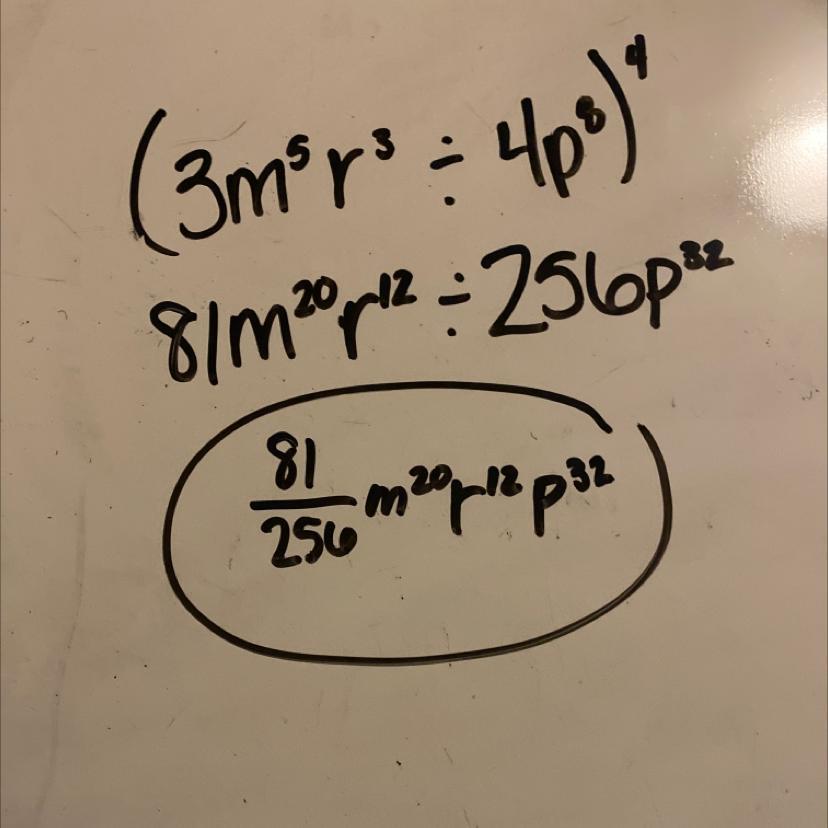 (3m⁵r³ ÷ 4p⁸)⁴
81m²⁰r¹² ÷ 256p³²
81/256 m²⁰r¹²p³²